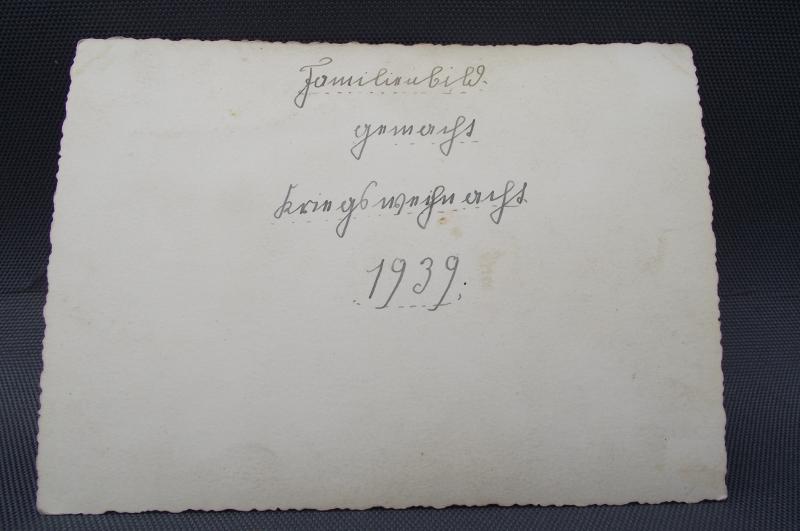 Familienbild.
gemacht
Kriegsweihnacht.
1939.